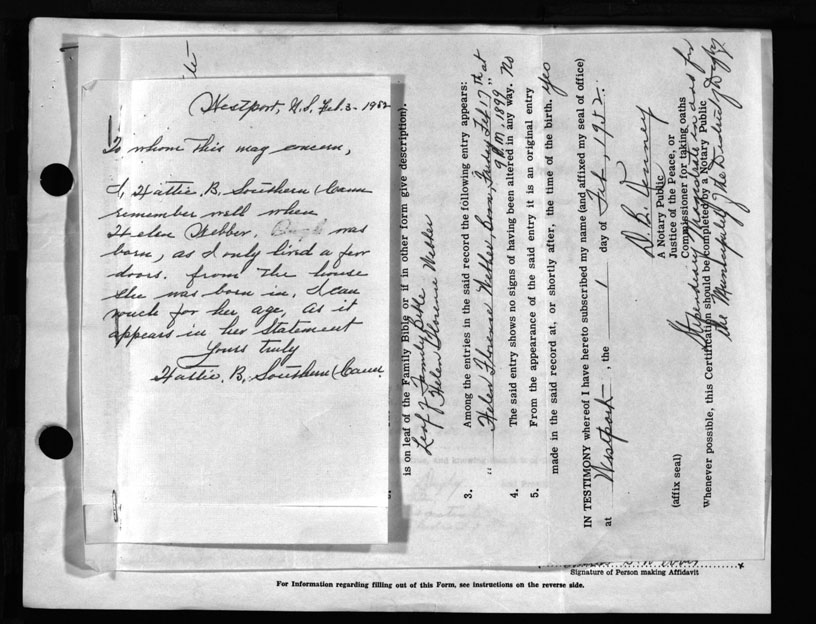 Westport, N.S. Feb. 3 - 1952
To whom this may concern,
I, Hattie. B. Southern Cann
remember well when
Helen Webber, was
born, as I only lived a few
doors. from the house
she was born in, I can
vouch for her age, as it
appears in her statement
Yours truly
Hattie. B. Southern Cann
is on leaf of the Family Bible or if in other form give description),
Leaf of Family Bible
of Helen Florence Webber
3. Among the entries in the said record the following entry appears:
" Helen Florence Webber Born, Friday Feb 17th at
9 P.M, 1899 "
4. The said entry shows no signs of having been altered in any way. No
5. From the appearance of the said entry it is an original entry
made in the said record at, or shortly after, the time of the birth. yes
IN TESTIMONY whereof I have hereto subscribed my name (and affixed my seal of office)
at Westport , the 1 day of Feb, 1952.
D. B. Denney
A Notary Public
Justice of the Peace, or
Commissioner for taking oaths
Stipendiary Magistrate in and for
the Municipality of the District of Digby
(affix seal)
Whenever possible, this Certification should be completed by a Notary Public
Signature of Person making Affidavit
For Information regarding filling out of this Form, see instructions on the reverse side.